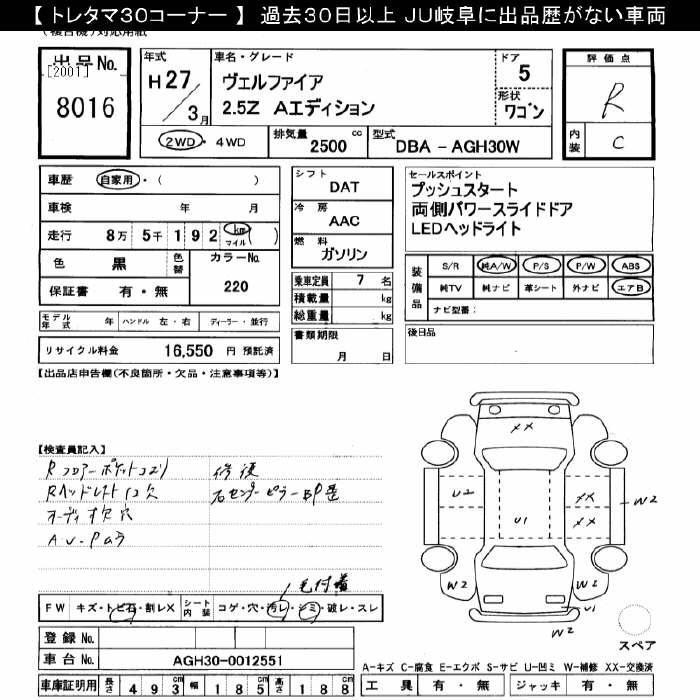 【 トレタマ30コーナー 】 過去30日以上 JU岐阜に出品歴がない車両
(複合機)対応用紙
出品No.
[2001]
8016
年式
H27/3月
車名・グレード
ヴェルファイア
2.5Z Aエディション
ドア
5
形状
ワゴン
評価点
R
内装
C
2WD・4WD
排気量
2500 cc
型式
DBA - AGH30W
車歴 自家用・( )
車検 年 月
走行 8万 5千 1 9 2 km マイル ( )
色 黒 色替
カラーNo.
220
保証書 有・無
モデル年式 年 ハンドル 左・右 ディーラー・並行
リサイクル料金 16,550 円 預託済
シフト
DAT
冷房
AAC
燃料
ガソリン
乗車定員 7 名
積載量 kg
総重量 kg
書類期限
月 日
セールスポイント
プッシュスタート
両側パワースライドドア
LEDヘッドライト
装備品
S/R 純A/W P/S P/W ABS
純TV 純ナビ 革シート 外ナビ エアB
ナビ型番:
後日品
【出品店申告欄(不良箇所・欠品・注意事項等)】
【検査員記入】
Rヘッドレスト1コ欠
オーディオ欠穴
修復
右センターピラー
毛付着
FW キズ・トビ石・割レX シート内装 コゲ・穴・汚レ・シミ・破レ・スレ
XX
U2
U1
XX
XX
W2
W2
W2
U1
W2
スペア
登録No.
車台No. AGH30-0012551
A-キズ C-腐食 E-エクボ S-サビ U-凹ミ W-補修 XX-交換済
車庫証明用 長さ 4 9 3 cm 幅 1 8 5 cm 高さ 1 8 8 cm
工具 有・無 ジャッキ 有・無